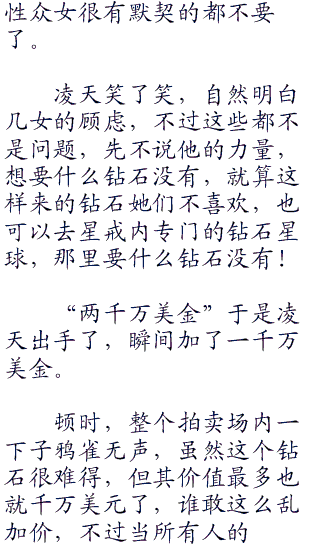 性众女很有默契的都不要
了。
凌天笑了笑，自然明白
几女的顾虑，不过这些都不
是问题，先不说他的力量，
想要什么钻石没有，就算这
样来的钻石她们不喜欢，也
可以去星戒内专门的钻石星
球，那里要什么钻石没有！
“两千万美金”于是凌
天出手了，瞬间加了一千万
美金。
顿时，整个拍卖场内一
下子鸦雀无声，虽然这个钻
石很难得，但其价值最多也
就千万美元了，谁敢这么乱
加价，不过当所有人的